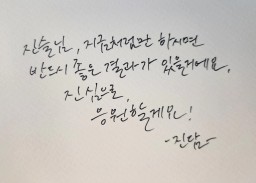 진솔님, 지금처럼만 하시면
반드시 좋은 결과가 있을거에요.
진심으로,
응원할게요!
-진담-